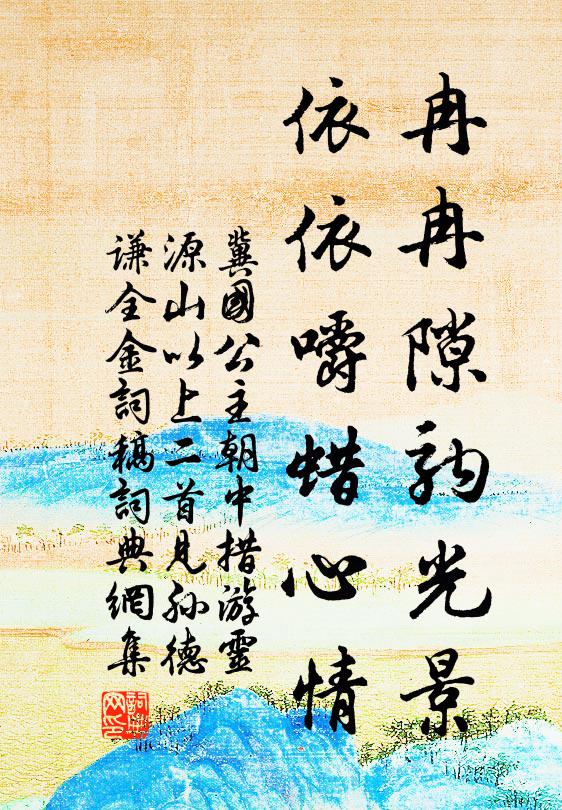 冉冉隙駒光景
依依嚼蜡心情
冀國公主朝中措游靈
源山以上二首見孙德
谦全金詞稿詞典網集